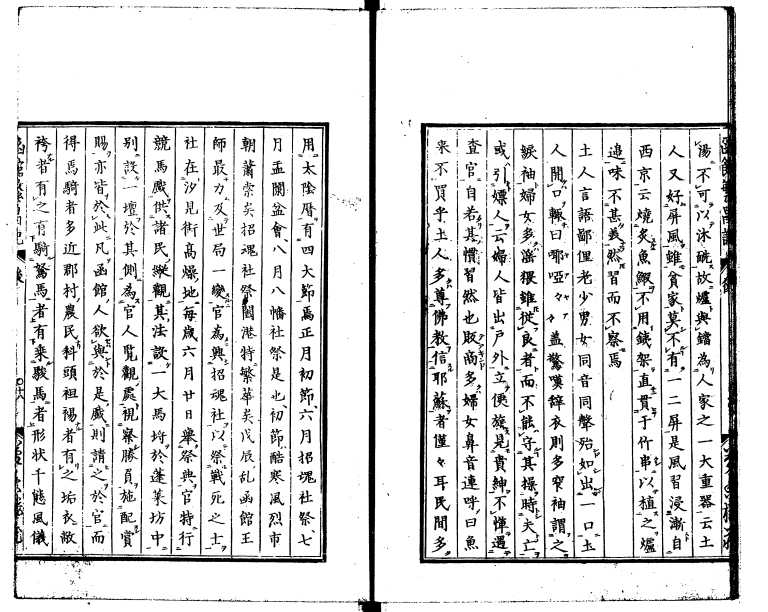 湯不可以沐盥故爐與鐺為人家之一大重器云土
人又好屏風雖貧家莫不有一二屏是風習浸漸自
西京云燒炙魚鰕不用鐵架直貫于竹串以植之爐
邊味不甚美然習而不察焉
土人言語鄙俚老少男女同音同聲殆如出一口土
人開口輒曰啞々蓋驚嘆辭衣則多窄袖謂之
袖婦女多 猥雖從良者而不能守其操時夫亡
或引嫖人云婦人皆出戶外立便旋見貴紳不憚遇
査官自若其慣習然也販商多婦女鼻音連呼曰魚
來不買乎土人多尊佛教信耶蘇者僅々耳民間多
用太陰曆有四大節焉正月初節六月招魂社祭七
月盂蘭盆會八月八幡社祭是也初節酷寒風烈市
朝蕭索矣招魂社祭闔港特繁華矣戊辰亂函館王
師最力及世局一變官為興招魂社以祭戰死之士
社在汐見街高燥地每歲六月廿日舉祭典官特行
競馬戲供諸民縱觀其法設一大馬埒於蓬萊坊中
別設一壇於其側為官人覽觀處視察勝負施配賞
賜亦皆於此凡函館人欲與於是戲則請之於官而
得焉騎者多近郡村農民科頭袒裼者有之垢衣敝
袴者有之有騎駑馬者有乘駿馬者形狀千態風儀